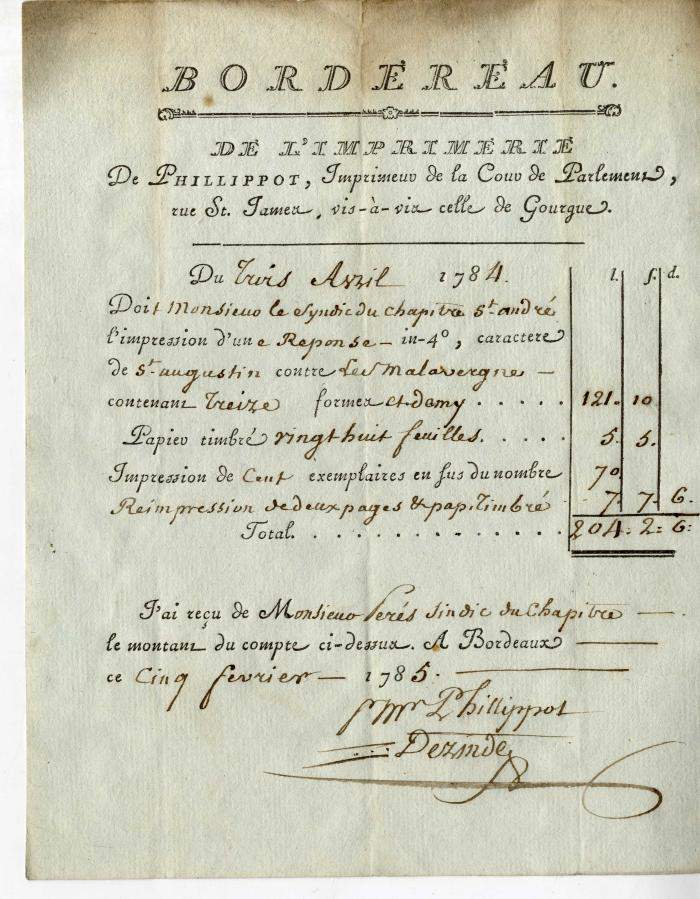 BORDEREAU.
DE L'IMPRIMERIE
De PHILLIPPOT, Imprimeur de la Cour de Parlement,
rue St. James, vis-à-vis celle de Gourgue.
l. s. d.
Du Trois Avril 1784.
Doit Monsieur le Syndic du Chapitre St. andré
l'impression d'une Reponse - in-4°, caractere
de St. augustin contre Les Malavergne -
contenant Treize formes et. demy . . . . . 121. 10
Papier timbré vingt huit feuilles. . . . . 5. 5.
Impression de Cent exemplaires en sus du nombre 70.
Reimpression de deux pages & pap. Timbré 7. 7. 6.
Total. . . . . . . . . . . . . . . 204. 2. 6.
J'ai reçu de Monsieur Perés Sindic du Chapitre
le montant du compte ci-dessus. A Bordeaux
ce Cinq fevrier - 1785.
pr Mr Phillippot